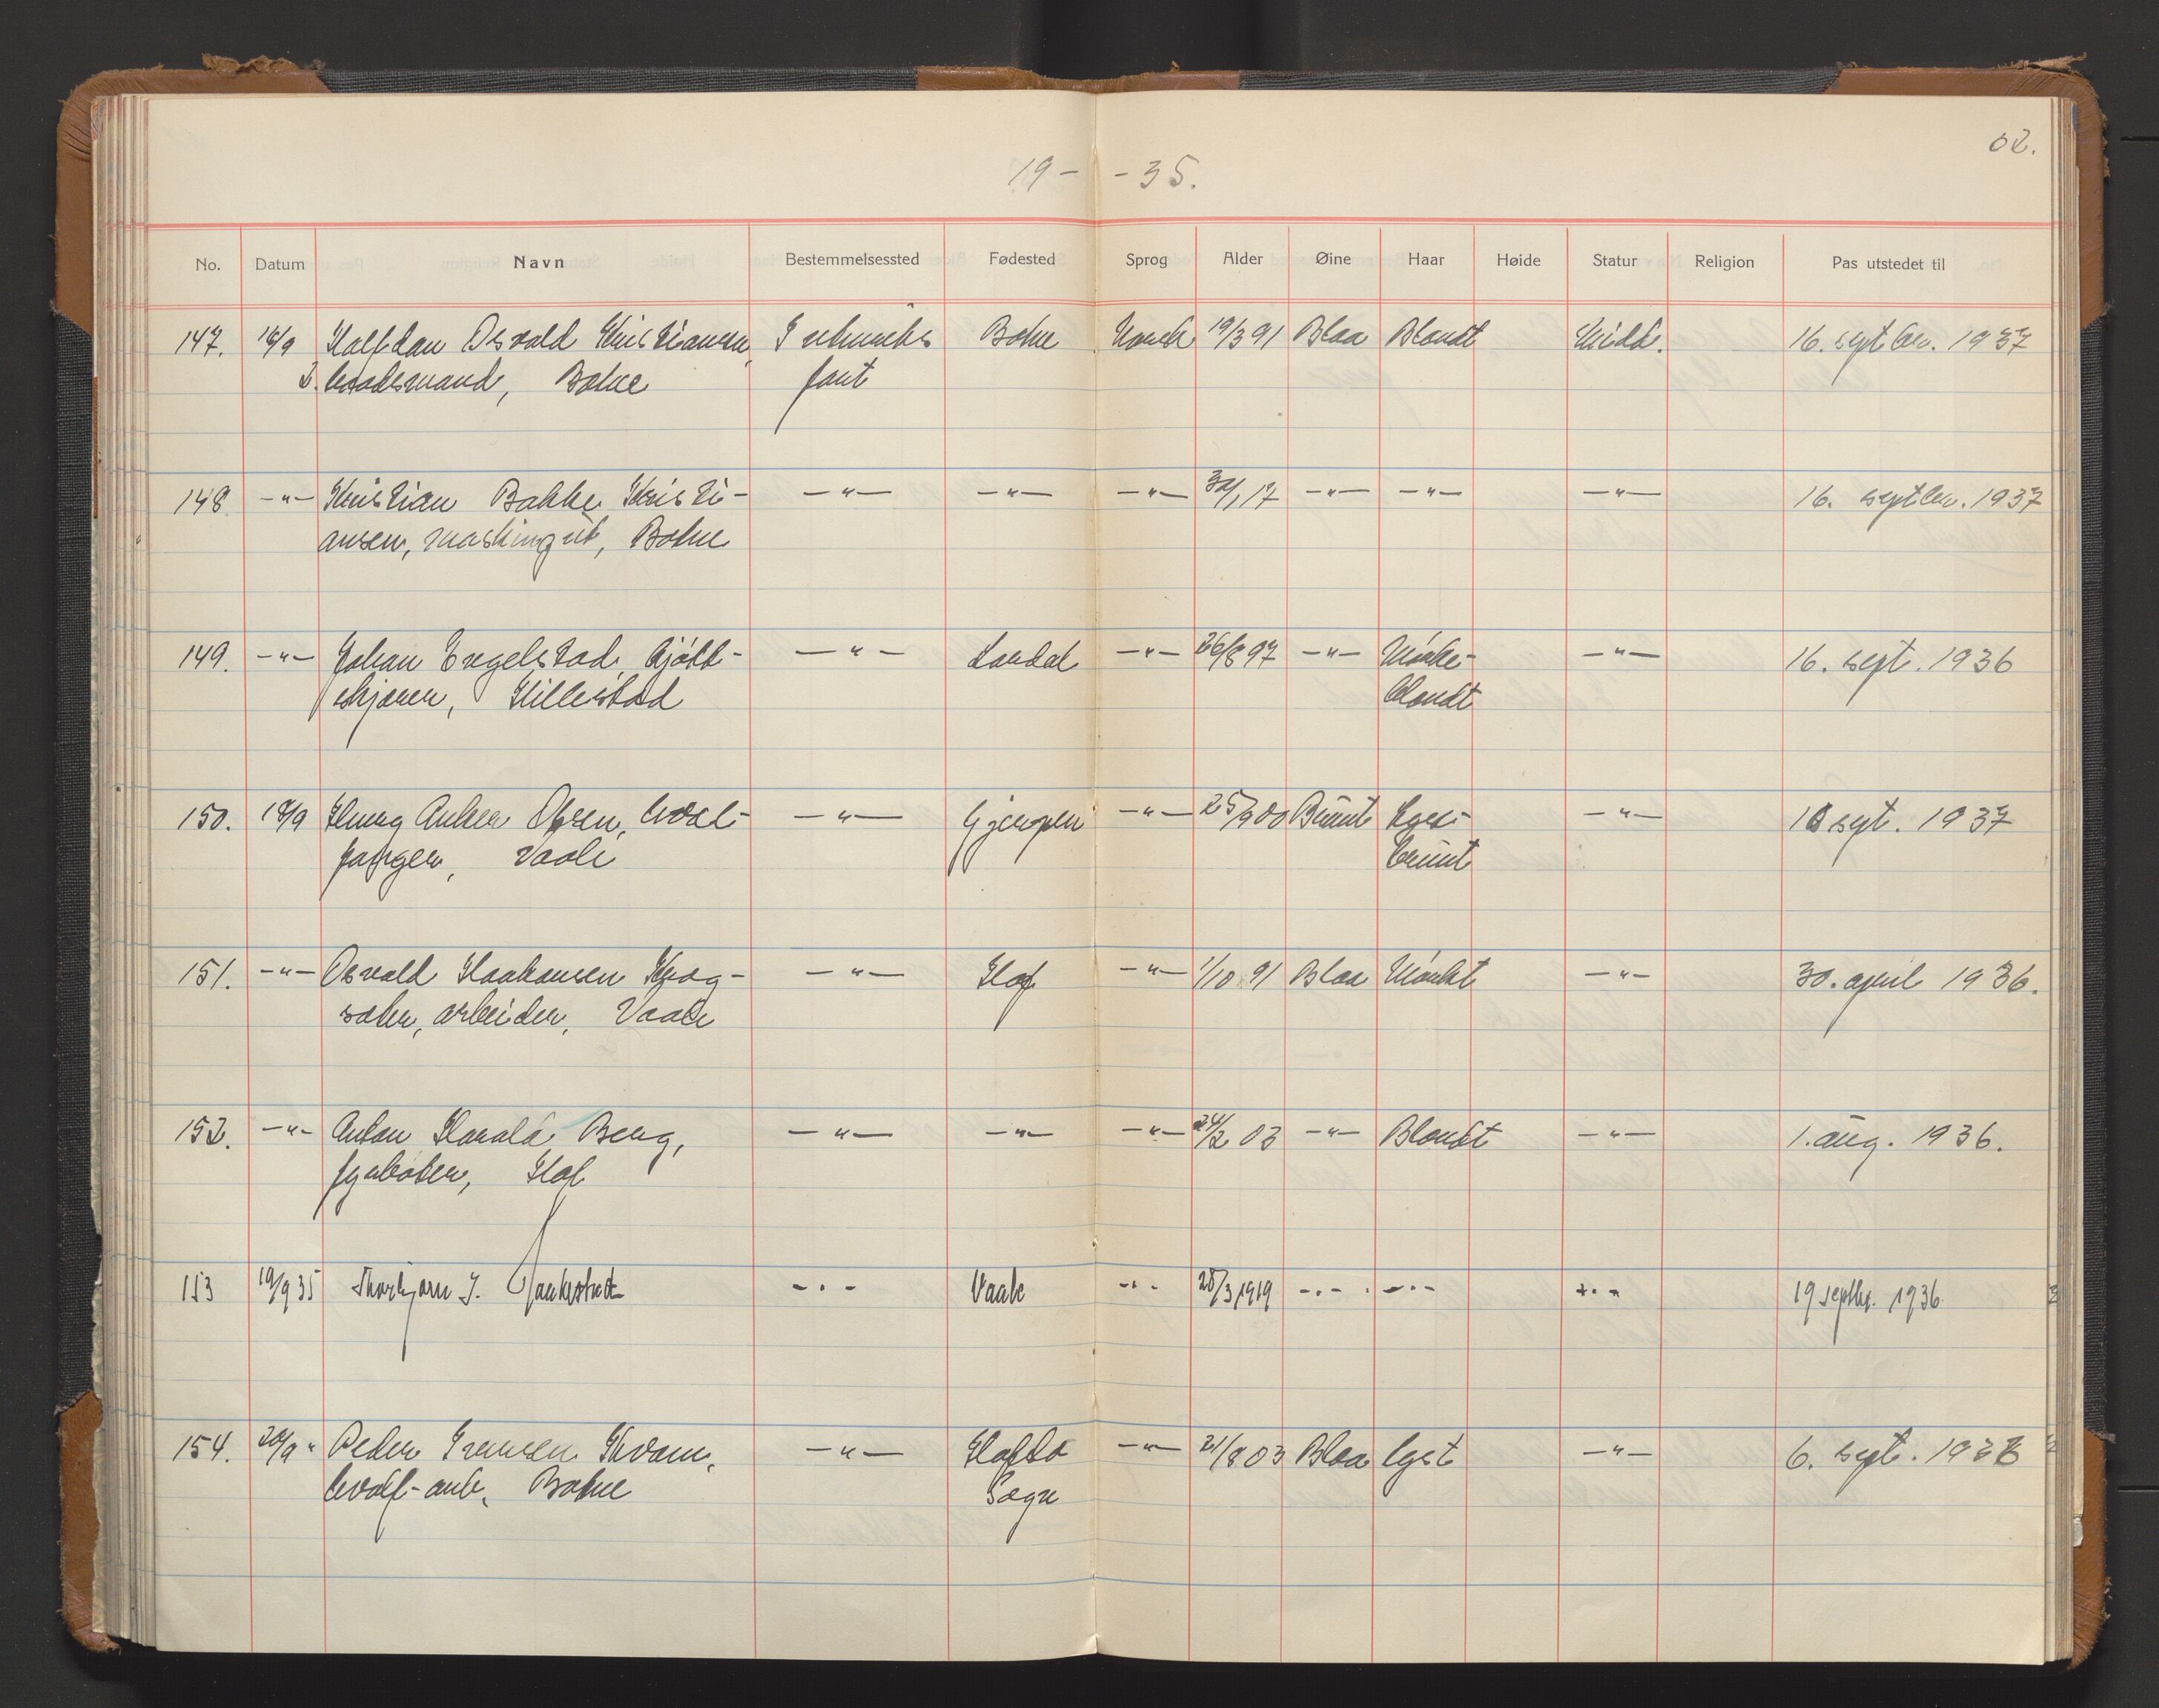 02.
19- -35.
No. Datum Navn Bestemmelsessted Fødested Sprog Alder Øine Haar Høide Statur Religion Pas utstedet til
147. 16/9 Halfdan Osvald Kristiansen, Botne Norsk 19/3 91 Blaa Blondt Midd. 16. septbr. 1937
2. baadsmand, Botne fart
148. -"- Kristian Bakke Kristi- -"- -"- -"- 17 -"- -"- -"- 16. septbr. 1937
ansen, maskingut, Botne
149. -"- Johan Engelstad, kjøtt- -"- Lardal -"- 26/8 97 -"- Mørke- -"- 16. sept. 1936
skjærer, Hillestad blondt
150. 18/9 Anker Olsen, hval- -"- Gjerpen -"- 25/9 00 Brunt Lyse- -"- sept. 1937
fanger, Vaale brunt
151. -"- Osvald Haakansen Skog- -"- Hof -"- 1/10 91 Blaa Mørkt -"- 30. april 1936.
arbeider, Vaale
152. -"- Anton Harald Berg, -"- -"- -"- 24/2 03 -"- Blondt -"- 1. aug. 1936.
fyrbøter, Hof
153 19/9 35 Thorbjørn J. -"- Vaale -"- 28/3 1919 -"- -"- -"- 19 septbr. 1936
154. 20/9 " Peder Iversen Kvam, -"- Hafslo -"- 21/8 03 Blaa lyst -"- 6. sept.
hvalf-arb. Botne Sogn